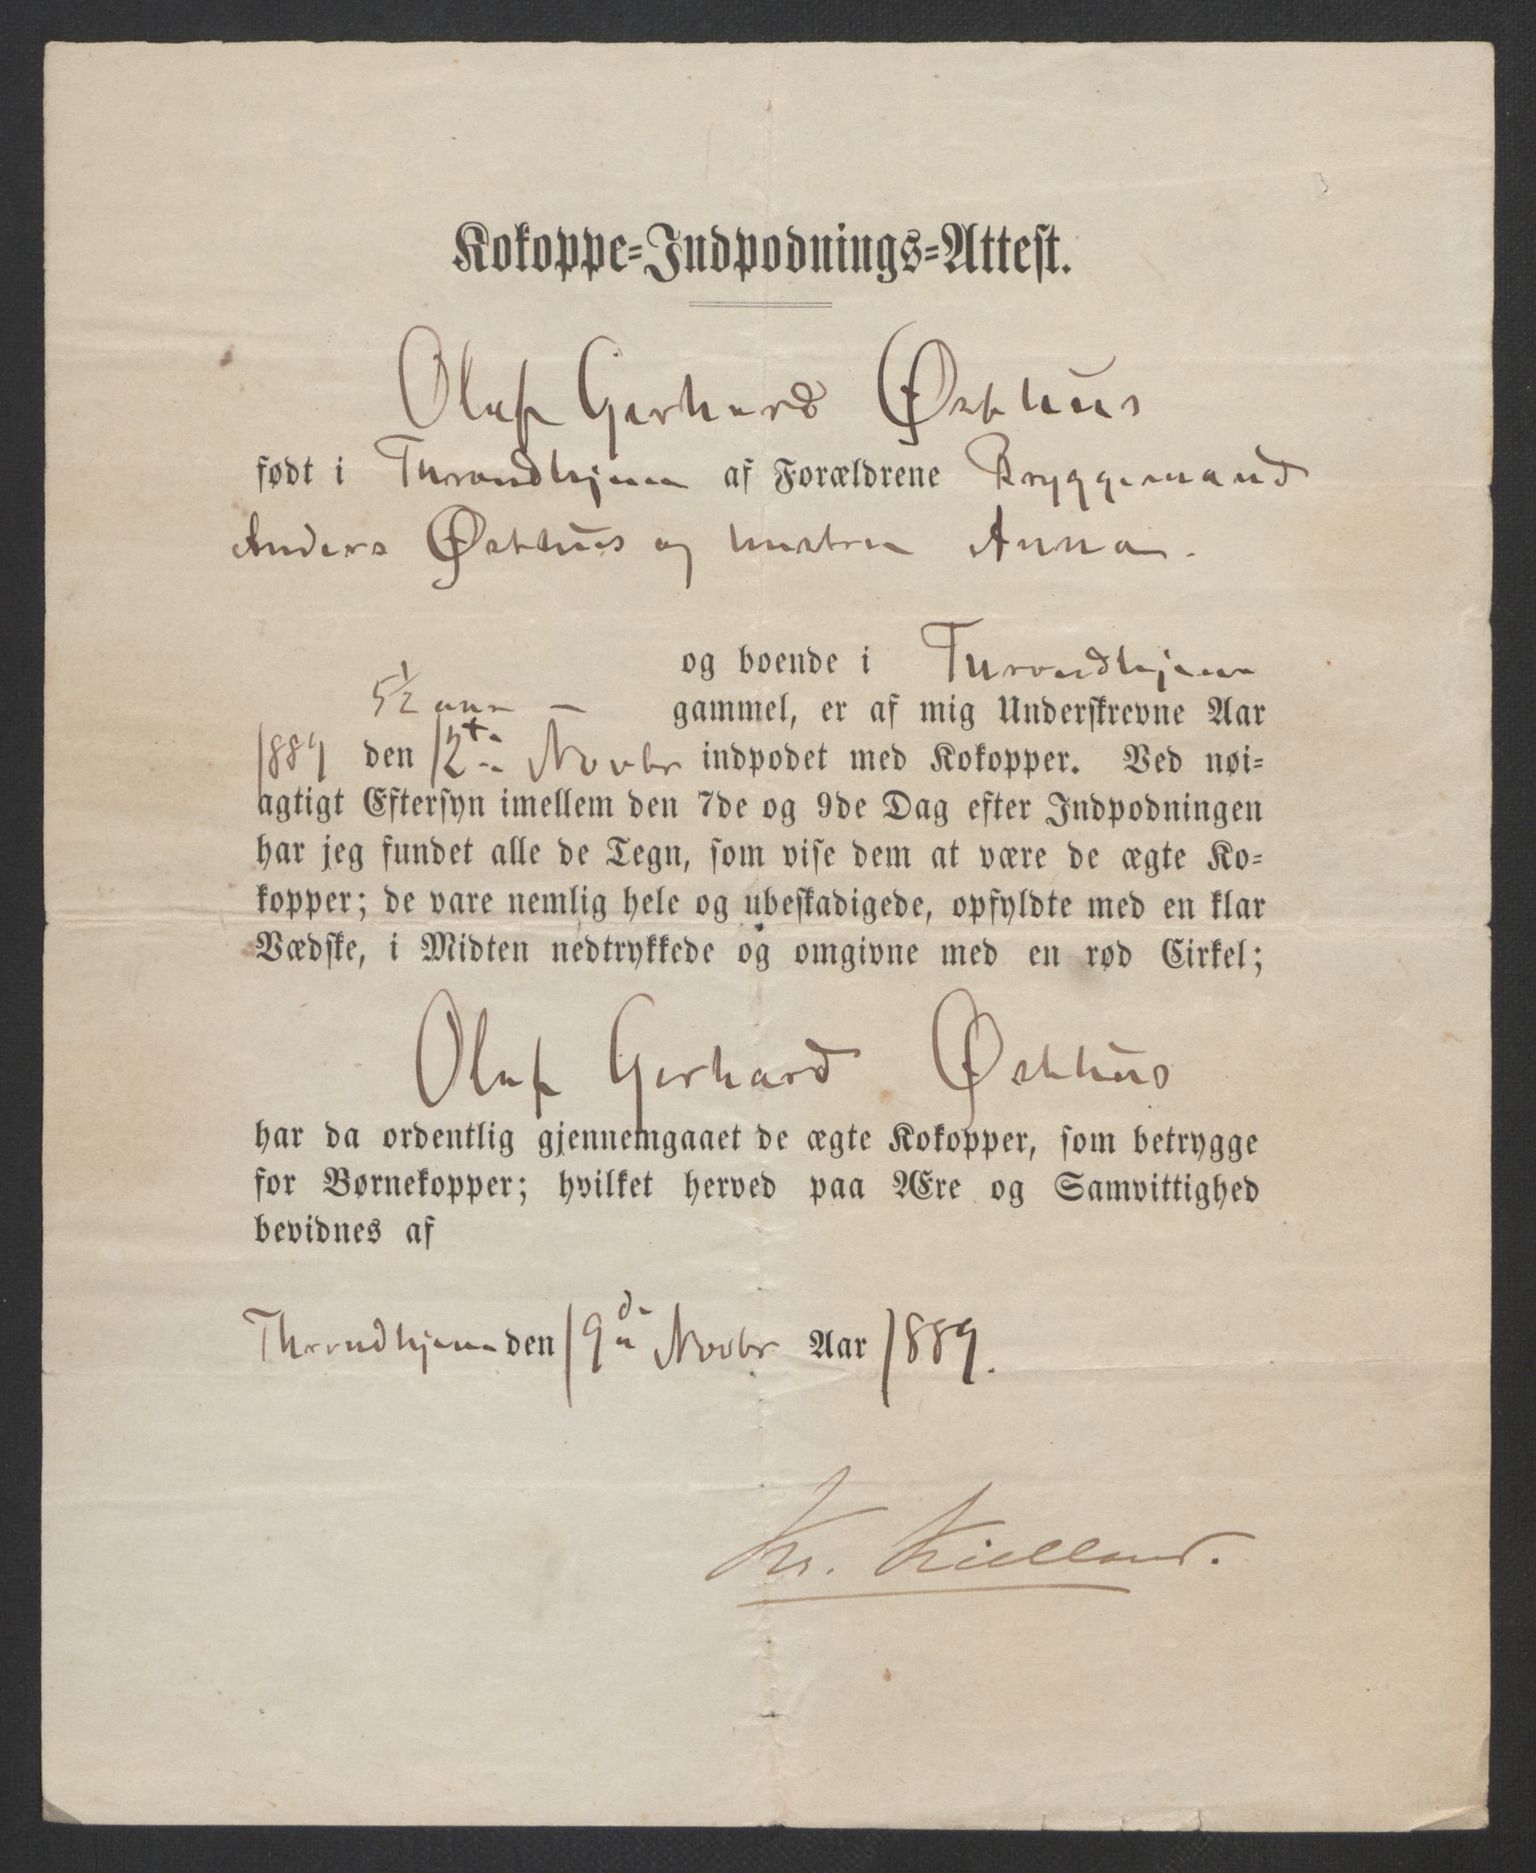 Kokoppe-Indpodnings-Attest.
Oluf Gerhard Østhus
født i Throndhjem af Forældrene Bryggemand
Anders Østhus og hustru Anna.
og boende i Throndhjem
5½ aar – gammel, er af mig Underskrevne Aar
1889 den 12te Novbr indpodet med Kokopper. Ved nøi-
agtigt Eftersyn imellem den 7de og 9de Dag efter Indpodningen
har jeg fundet alle de Tegn, som vise dem at være de ægte Ko-
kopper; de vare nemlig hele og ubeskadigede, opfyldte med en klar
Vædske, i Midten nedtrykkede og omgivne med en rød Cirkel;
Oluf Gerhard Østhus
har da ordentlig gjennemgaaet de ægte Kokopper, som betrygge
for Børnekopper; hvilket herved paa Ære og Samvittighed
bevidnes af
Throndhjem den 19de Novbr Aar 1889.
Kr. Kielland.